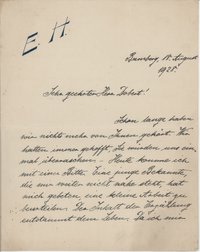 E. H.
Bamberg, 18. August
1925.
Sehr geehrter Herr Dobert!
Schon lange haben
wir nichts mehr von Ihnen gehört. Wir
hatten immer gehofft, Sie würden uns ein-
mal überraschen. – Heute komme ich
mit einer Bitte. Eine junge Bekannte,
die mir nicht nahe steht, hat
mich gebeten eine kleine Arbeit zu
beurteilen. Der Inhalt der Erzählung
entstammt dem Leben. Da ich mir